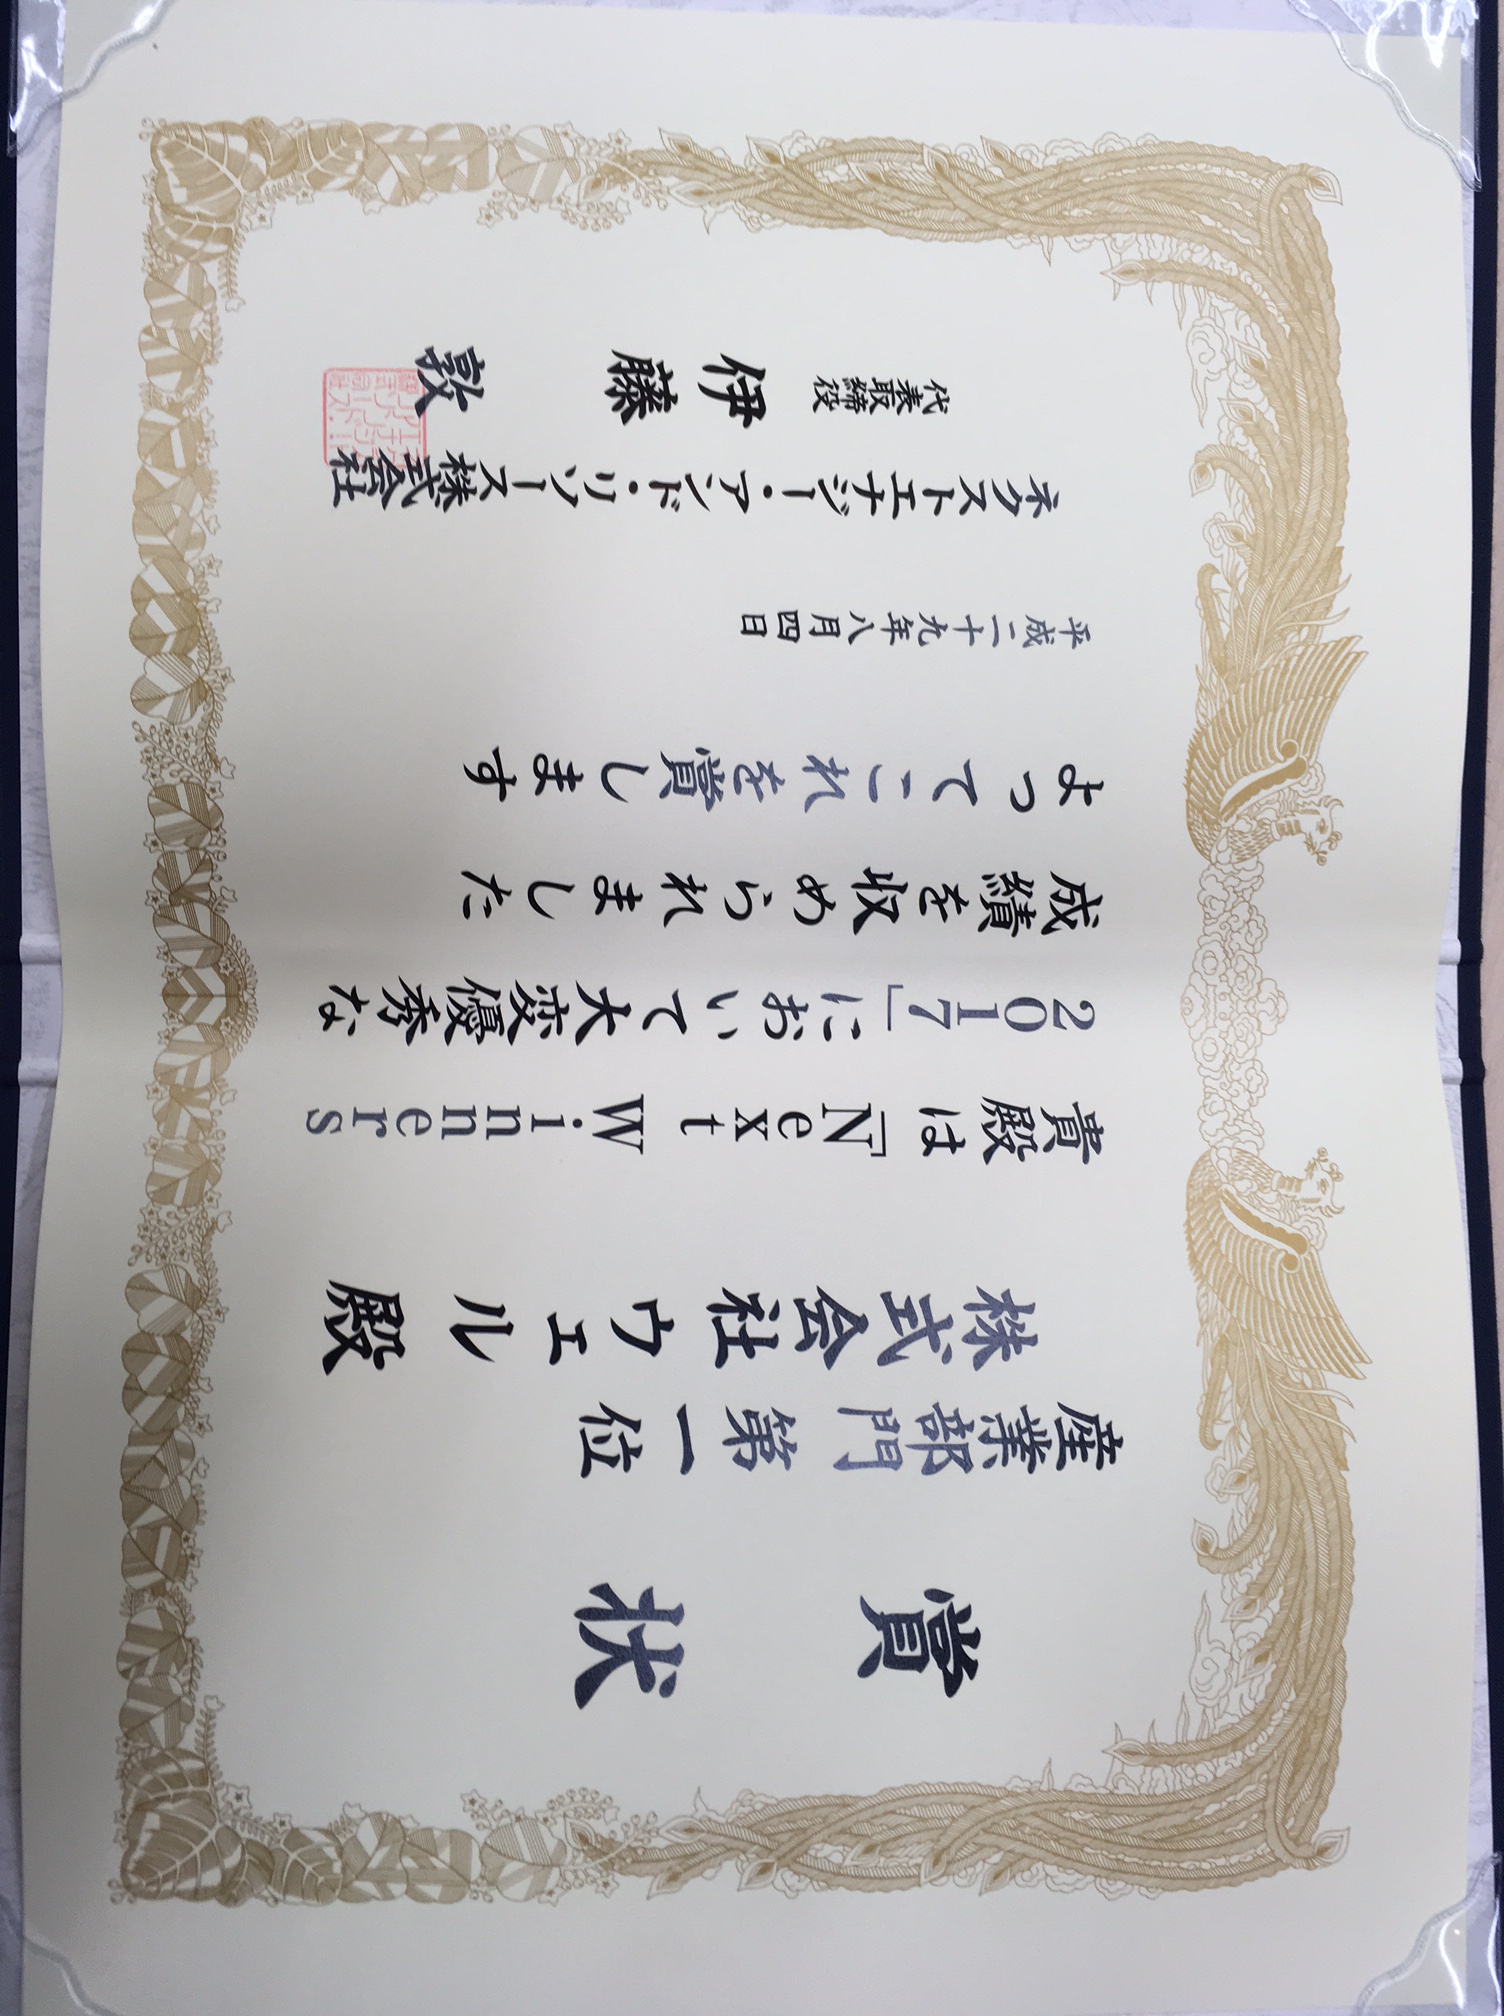 賞状
産業部門 第一位
株式会社ウェル 殿
貴殿は「Next Winners
2017」において大変優秀な
成績を収められました
よってこれを賞します
平成二十九年八月四日
ネクストエナジー・アンド・リソース株式会社
代表取締役 伊藤 敦